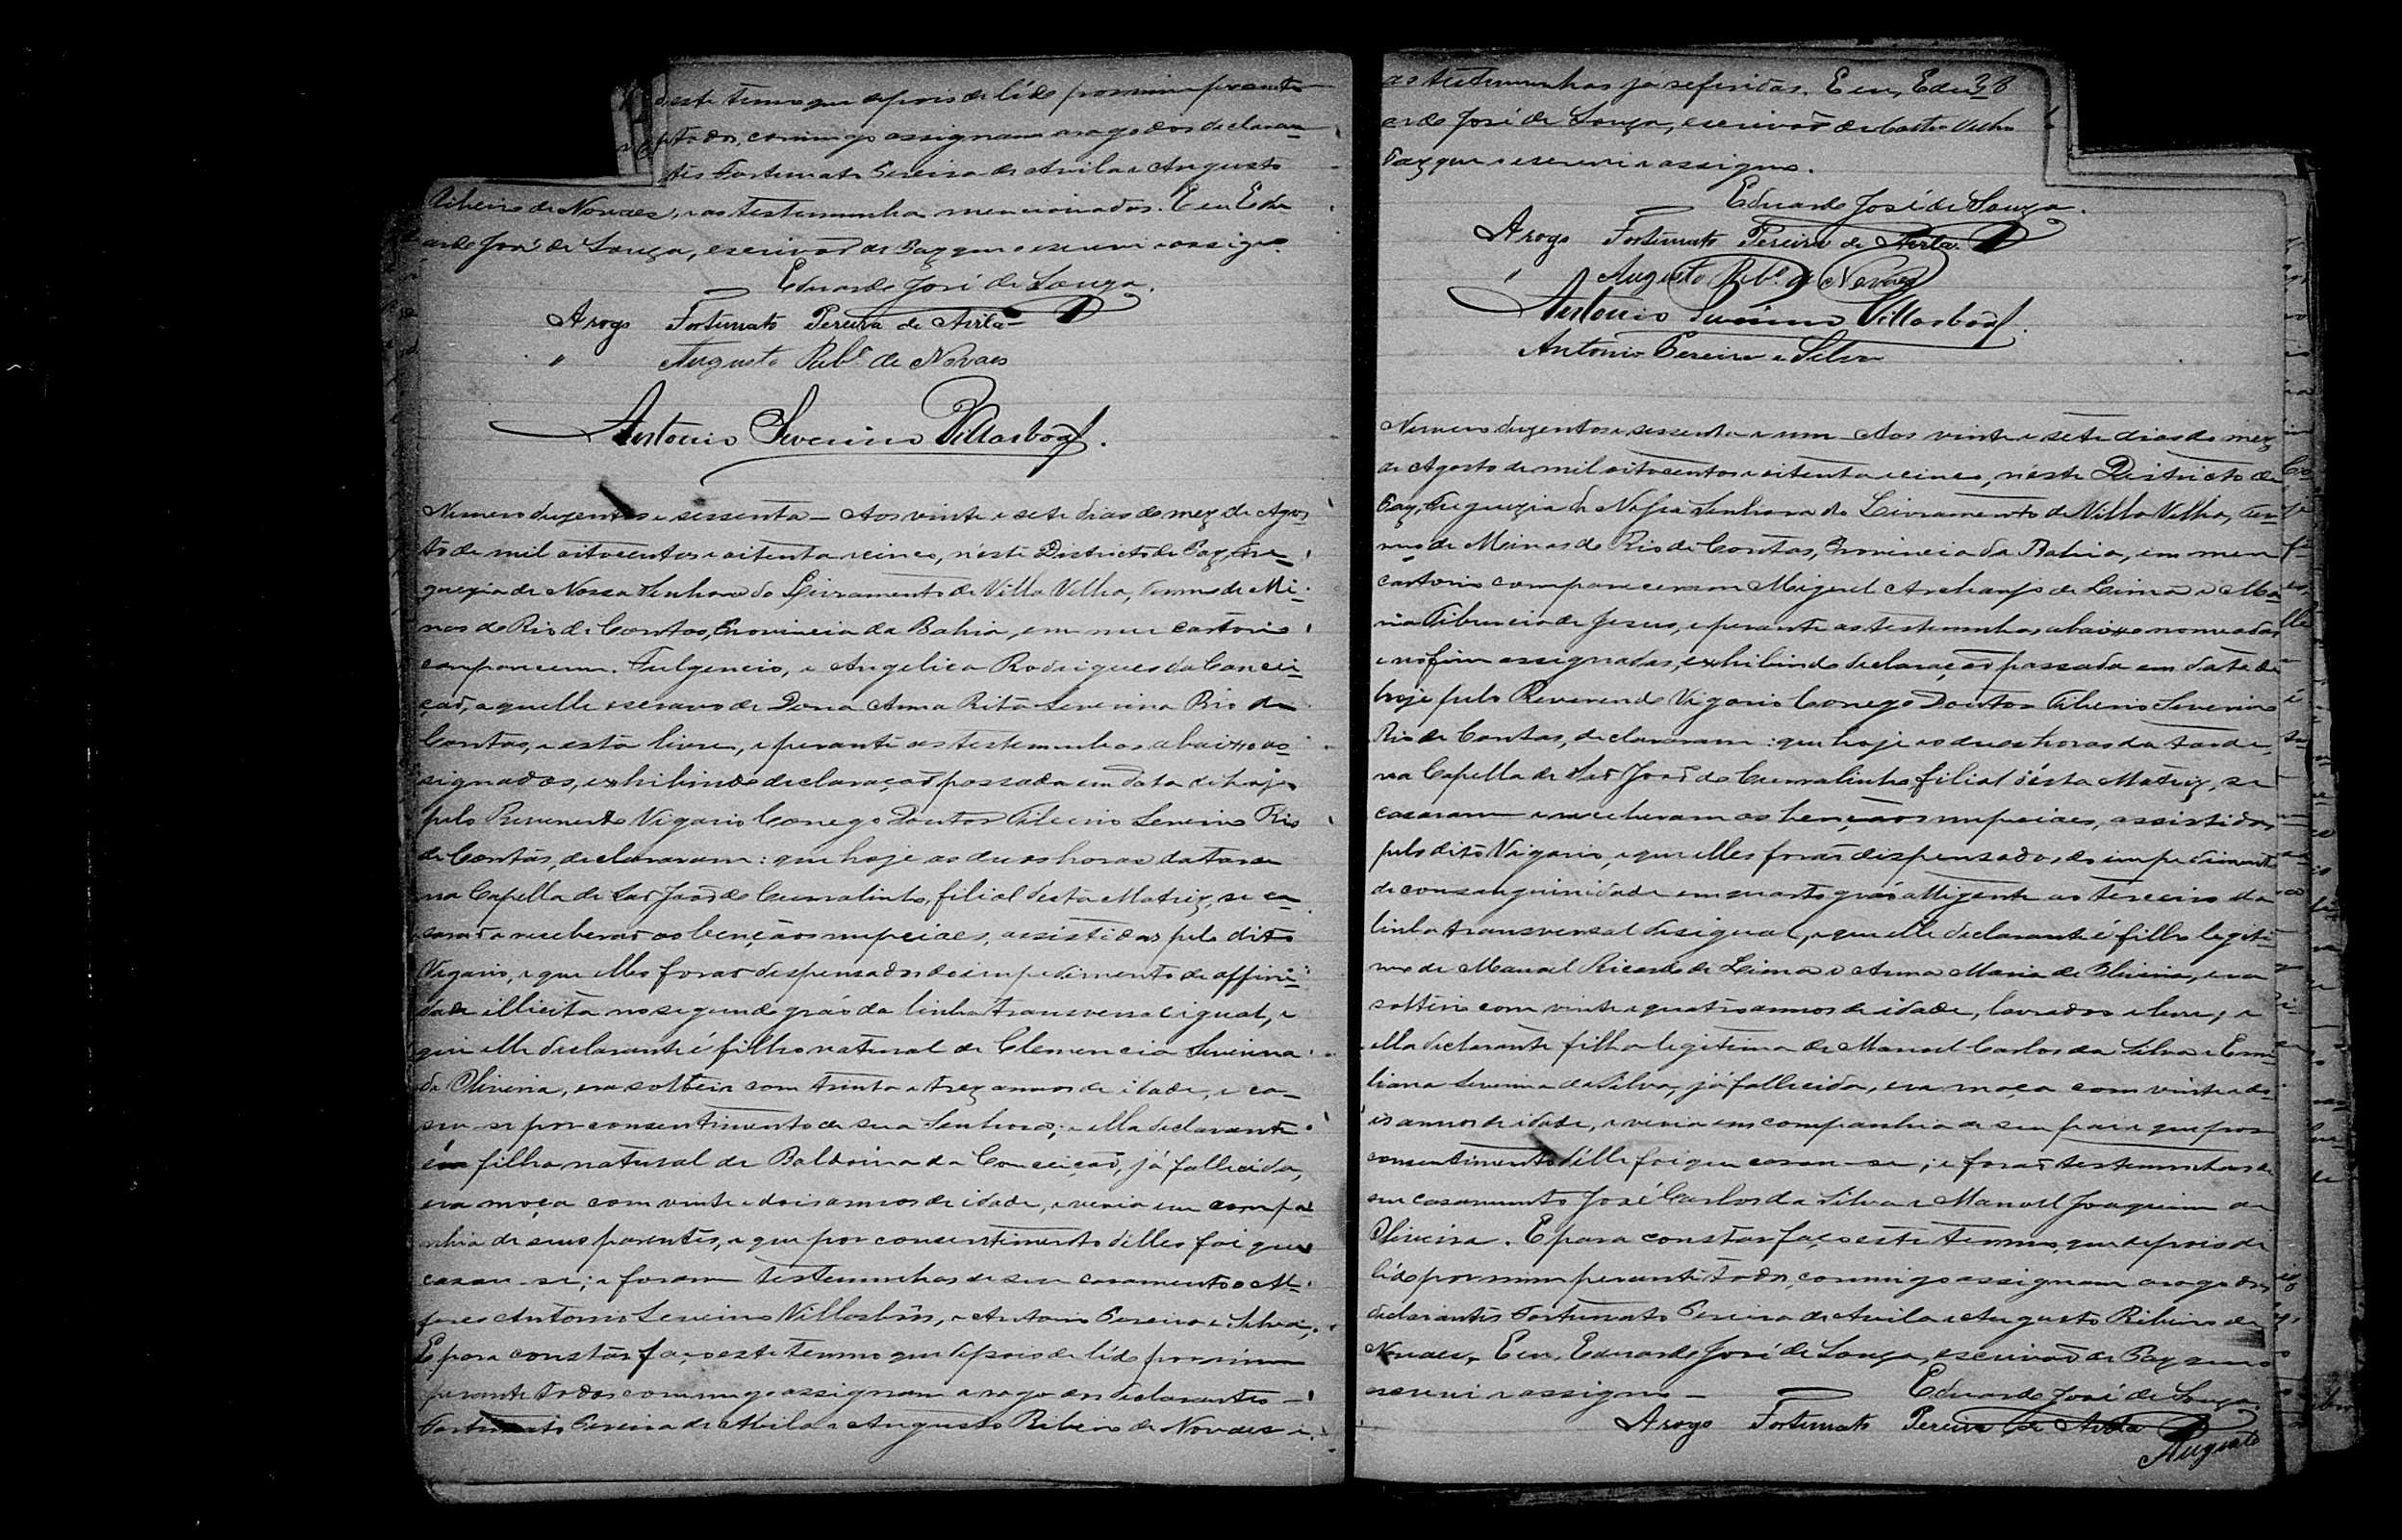 deste termo que depois de lido por mim perante
todos, commigo assignam a rogo dos declaran-
tes Fortunato Pereira de Avila e Augusto
Ribeiro de Novaes, e as testemunhas mencionadas. E eu Edu
ardo José de Souza, escrivaõ de Paz que o escrevi e assigno.
Eduardo José de Souza.
A rogo Fortunato Pereira de Avila
" Augusto Rib.º de Novaes
Antonio Severino Villasboas.
Numero duzentos e sessenta – Aos vinte e sete dias do mez de Agos-
to de mil oitocentos e oitenta e cinco, n'este Districto de Paz, Fre-
guezia de Nossa Senhora do Livramento de Villa Velha, Termo de Mi-
nas do Rio de Contas, Provincia da Bahia, em meu cartorio
compareceram. Fulgencio, e Angelica Rodrigues da Concei-
çaõ, aquelle escravo de Dona Anna Rita Severina Rio de
Contas, e esta livre, e perante as testemunhas abaixo as-
signadas, exhibindo declaraçaõ passada em data de hoje
pelo Reverendo Vigario Conego Doutor Tiberio Severino Rio
de Contas, declararam: que hoje as duas horas da tarde
na Capella de Saõ Joaõ do Curralinho, filial d'esta Matriz, se ca-
saraõ e receberaõ as bençaõs nupciaes, assistidos pelo dito
Vigario, e que elles foraõ dispensados do impedimento de affini-
dade illicita no segundo gráo da linha transversal igual, e
que elle declarante é filho natural de Clemencia Severina
de Oliveira, era solteiro com trinta e trez annos de idade, e ca-
sou-se por consentimento de sua Senhora; e ella declarante
filha natural de Balduina da Conceiçaõ, já fallecida,
era moça com vinte e dois annos de idade, e vivia em compa-
nhia de seus parentes, e que por consentimento d'elles foi que
casou-se; e foram testemunhas de seu casamento o Al-
feres Antonio Severino Villasbôas, e Antonio Pereira e Silva,
E para constar faço este termo que depois de lido por mim
perante todos commigo assignam a rogo dos declarantes –
Fortunato Pereira de Avila e Augusto Ribeiro de Novaes e
as testemunhas já referidas. E eu, Edu 38
ardo José de Souza, escrivaõ de
Paz que o escrevi e assigno.
Eduardo José de Souza.
A rogo Fortunato Pereira de Avila
" Augusto Rib.º de Novaes
Antonio Severino Villasboas.
Antonio Pereira e Silva
Numero duzentos e sessenta e um – Aos vinte e sete dias do mez
de Agosto de mil oitocentos e oitenta e cinco, n'este Districto de
Paz, Freguezia de Nossa Senhora do Livramento de Villa Velha, Ter-
mo de Minas do Rio de Contas, Provincia da Bahia, em meu
cartorio compareceram Miguel Archanjo de Lima e Ma-
ria Tiburcia de Jesus, e perante as testemunhas abaixo nomeadas
e no fim assignadas, exhibindo declaraçaõ passada em data de
hoje pelo Reverendo Vigario Conego Doutor Tiberio Severino
Rio de Contas, declararam: que hoje as duas horas da tarde,
na Capella de Saõ Joaõ do Curralinho, filial d'esta Matriz, se
casaram e receberam as bençaõs nupciaes, assistidos
pelo dito Vigario, e que elles foraõ dispensados do impedimento
de consanguinidade em quarto gráo attigente ao terceiro da
linha transversal desigual, e que elle declarante é filho legiti
mo de Manoel Ricardo de Lima e Anna Maria de Oliveira, era
solteiro com vinte e quatro annos de idade, lavrador e livre; e
ella declarante filha legitima de Manoel Carlos da Silva e Emi
liana Severina da Silva, já fallecida, era moça com vinte e do-
is annos de idade, e vivia em companhia de seu pai e que por
consentimento d'elle foi que casou-se; e foraõ testemunhas de
seu casamento José Carlos da Silva e Manoel Joaquim de
Oliveira. E para constar faço este termo, que depois de
lido por mim perante todos, commigo assignam a rogo dos
declarantes Fortunato Pereira de Avila e Augusto Ribeiro de
Novaes. E eu, Eduardo José de Souza, escrivaõ de Paz que o
escrevi e assigno –
Eduardo José de Souza
A rogo Fortunato Pereira de Avila
Augusto